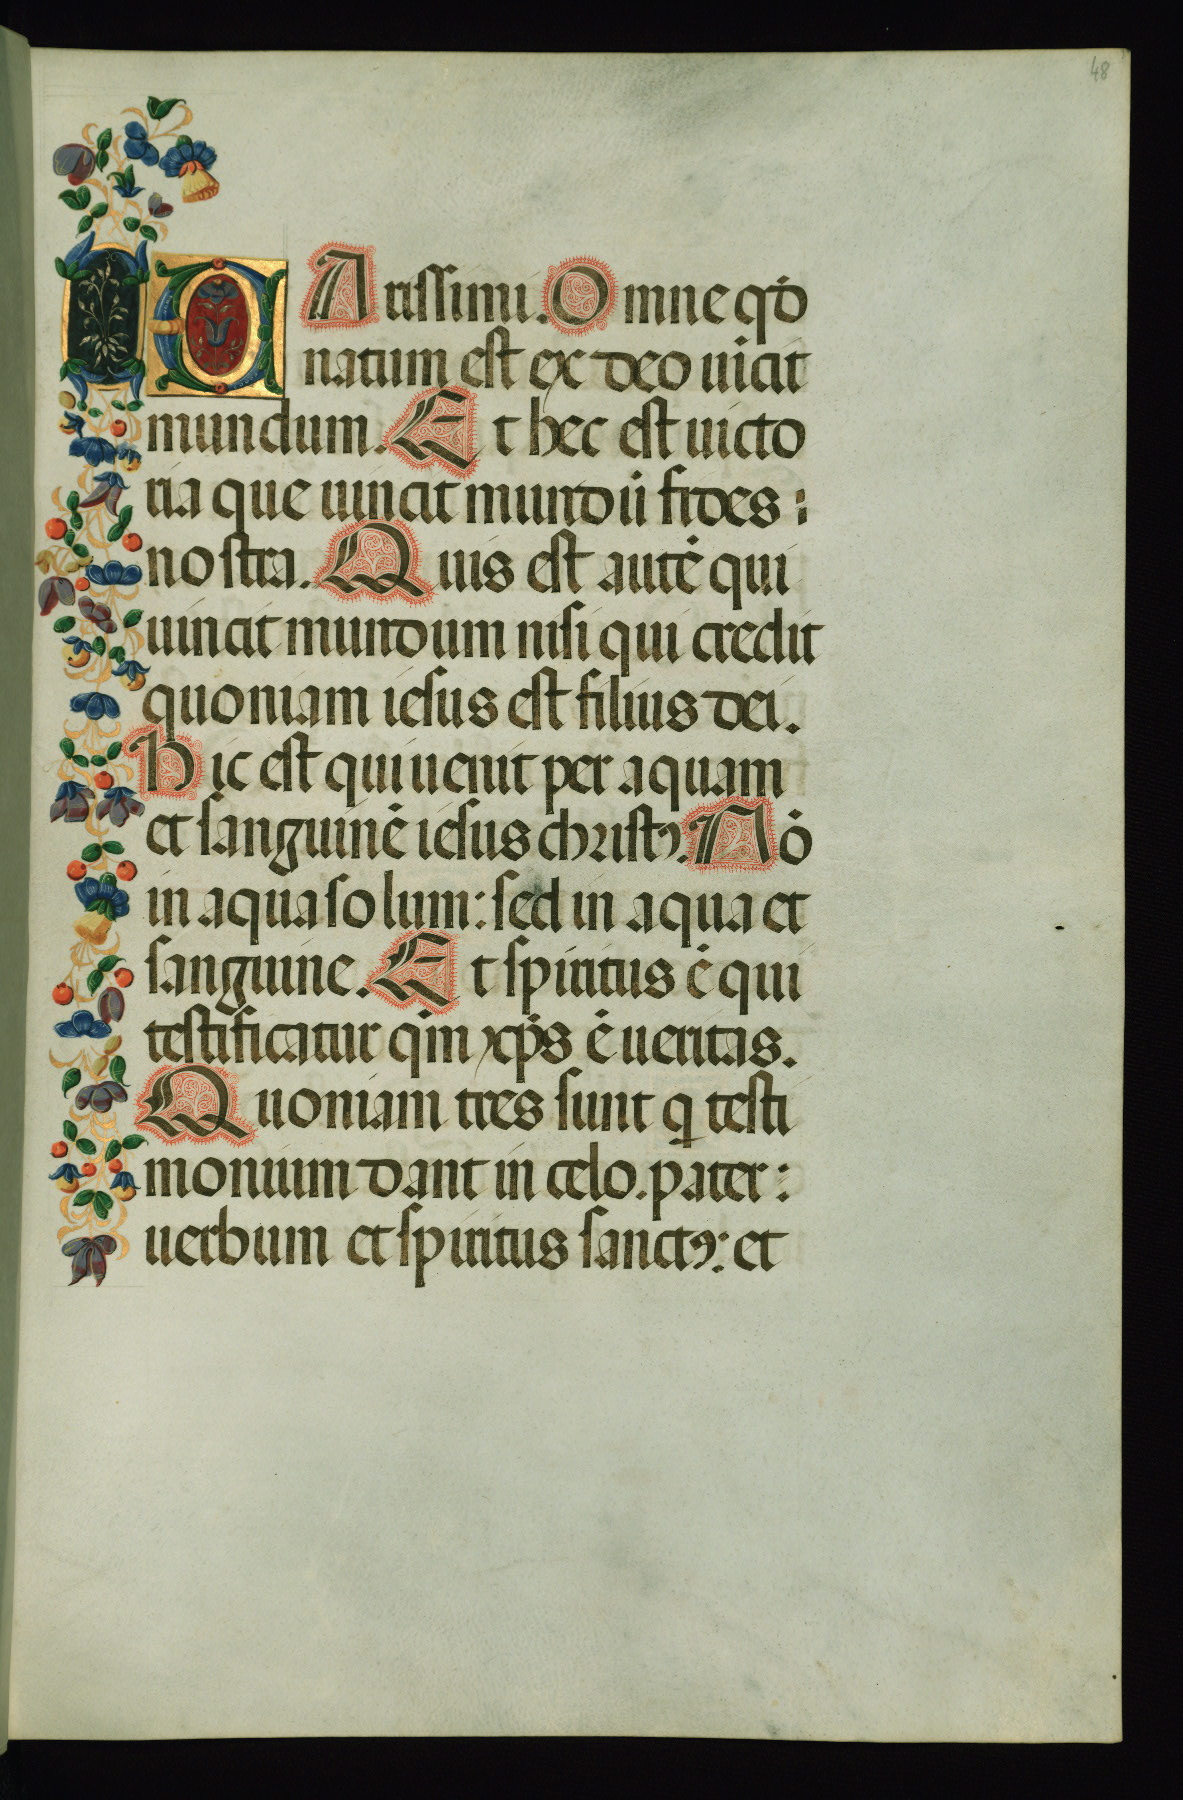 48
CArissimi. Omne qḋ
natum est ex deo uicit
mundum. Et hec est uicto
ria que uincit mundū fides :
nostra. Quis est autē qui
uincit mundum nisi qui credit
quoniam iesus est filius dei.
Hic est qui uenit per aquam
et sanguinē iesus christꝰ. Nō
in aqua solum: sed in aqua et
sanguine. Et spiritus ē qui
testificatur qm̄ xp̄s ē ueritas.
Quoniam tres sunt q̄ testi
monium dant in celo. pater:
uerbum et spiritus sanctꝰ: et